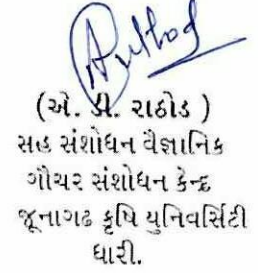 (એ. ડી. રાઠોડ )
સહ સંશોધન વૈજ્ઞાનિક
ગૌચર સંશોધન કેન્દ્ર
જૂનાગઢ કૃષિ યુનિવર્સિટી
ધારી.